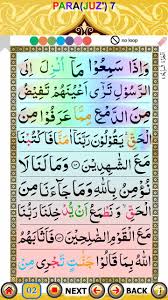 PARA(JUZ') 7
no loop
وَاِذَا سَمِعُوْا مَاۤ اُنْزِلَ
اِلَى الرَّسُوْلِ تَرٰۤى اَعْيُنَهُمْ تَفِيْضُ
مِنَ الدَّمْعِ مِمَّا عَرَفُوْا مِنَ
الْحَقِّ يَقُوْلُوْنَ رَبَّنَاۤ اٰمَنَّا فَاكْتُبْنَا
مَعَ الشّٰهِدِيْنَ وَمَا لَنَا لَا
نُؤْمِنُ بِاللّٰهِ وَمَا جَآءَنَا مِنَ
الْحَقِّ وَنَطْمَعُ اَنْ يُّدْخِلَنَا
رَبُّنَا مَعَ الْقَوْمِ الصّٰلِحِيْنَ فَاَثَابَهُمُ
اللّٰهُ بِمَا قَالُوْا جَنّٰتٍ تَجْرِيْ مِنْ
02 NEXT BACK